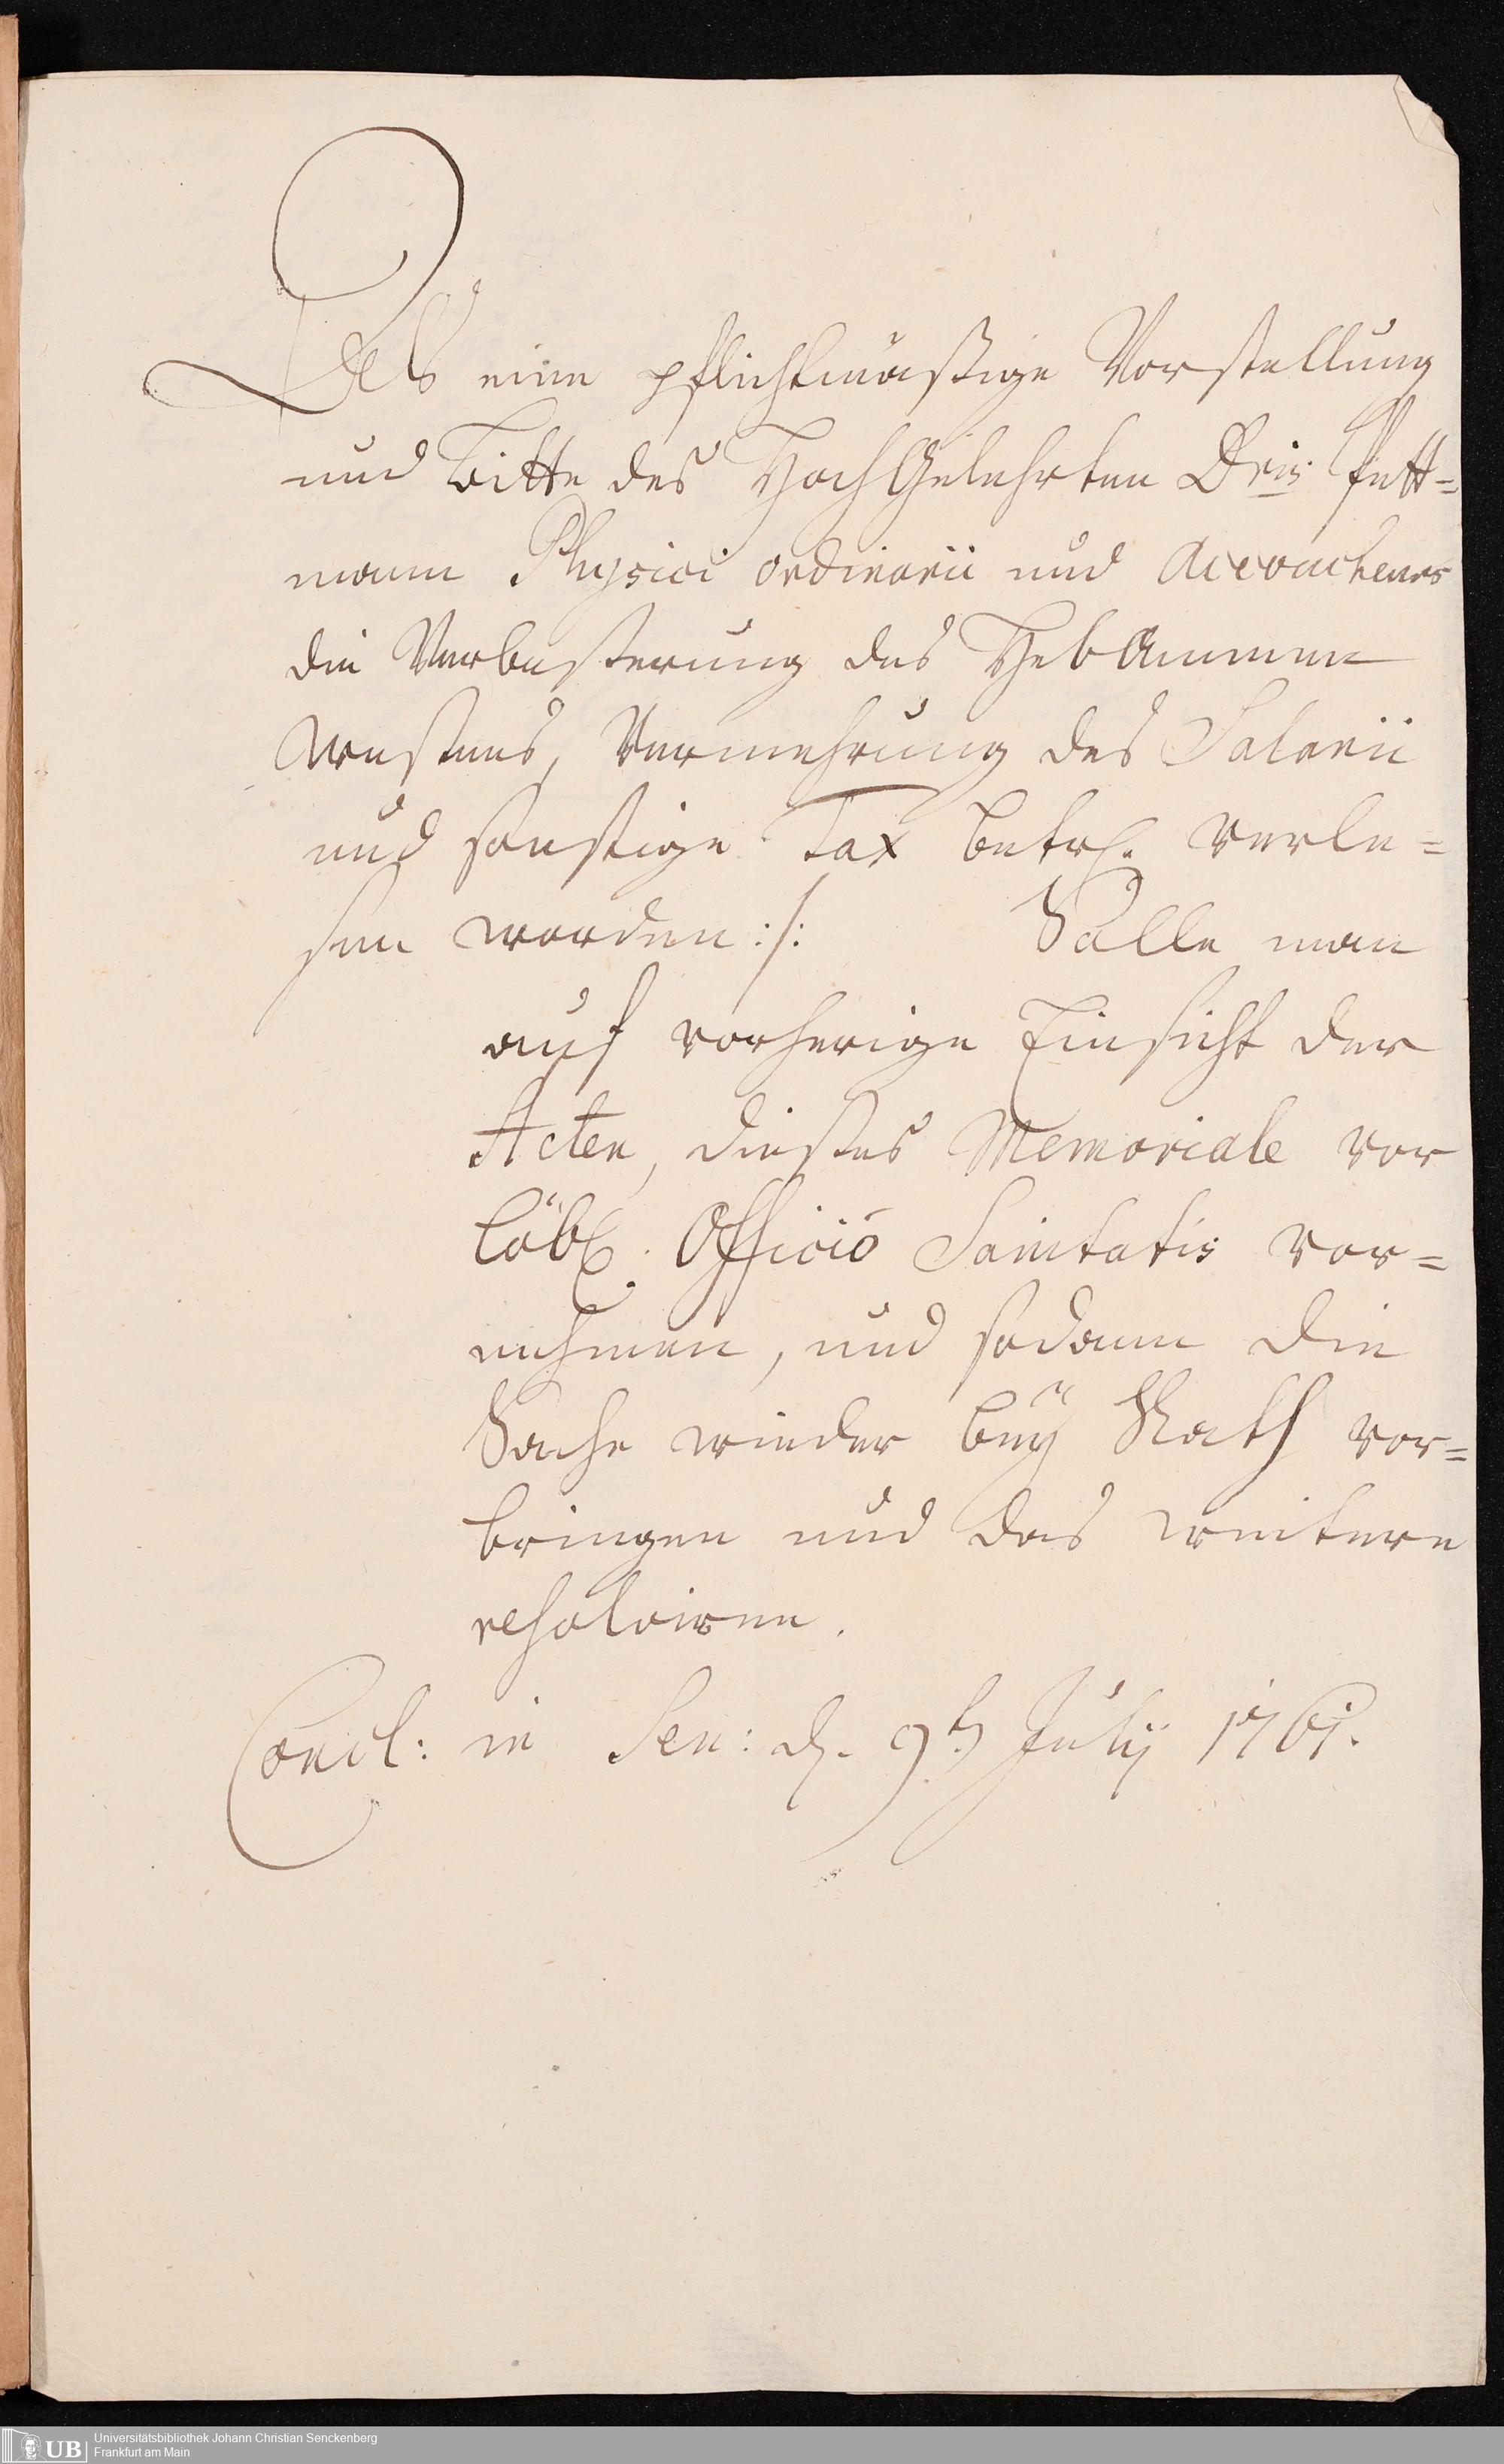 Als eine pflichtmäßige Vorstellung
und Bitte des HochGelehrten Dris. Pett=
mann Physici ordinarii und Accoucheurs
die Verbeßerung des HebAmmen
weßens, Vermehrung des Salarii
und sonstige Tax betrf. verle=
sen worden :/: Solle man
auf vorherige Einsicht der
Acten, dießes Memoriale vor
löbl. Officio Sanitatis vor=
nehmen, und sodann die
Sache wieder bey Rath vor=
bringen und das weitere
resolviren.
Concl: in Sen: d. 9t. July 1761.
UB Universitätsbibliothek Johann Christian Senckenberg
Frankfurt am Main